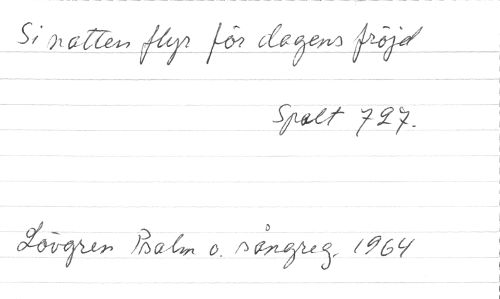 Si natten flyr för dagens fröjd
Spalt 727.
Lövgren Psalm o. sångreg. 1964